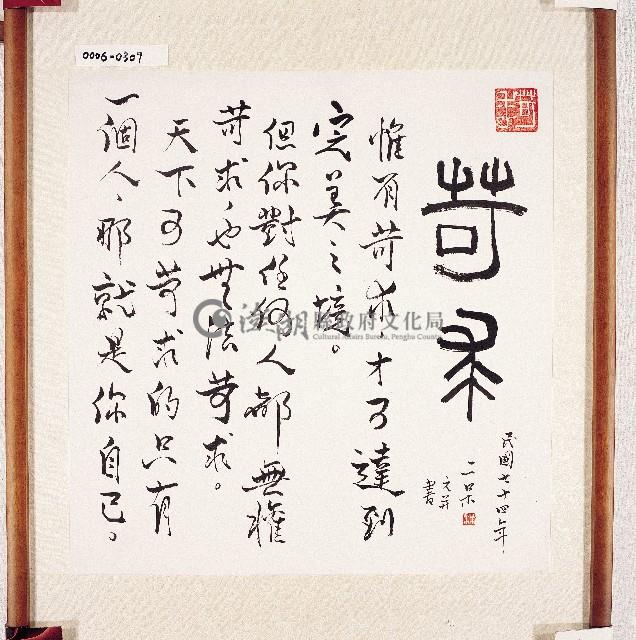 0006-0309
苛求
惟有苛求才可達到
完美之境。
但你對任何人都無權
苛求，也無法苛求。
天下可苛求的只有
一個人、那就是你自己。
民國七十四年
文并書
澎湖縣政府文化局
Cultural Affairs Bureau, Penghu County